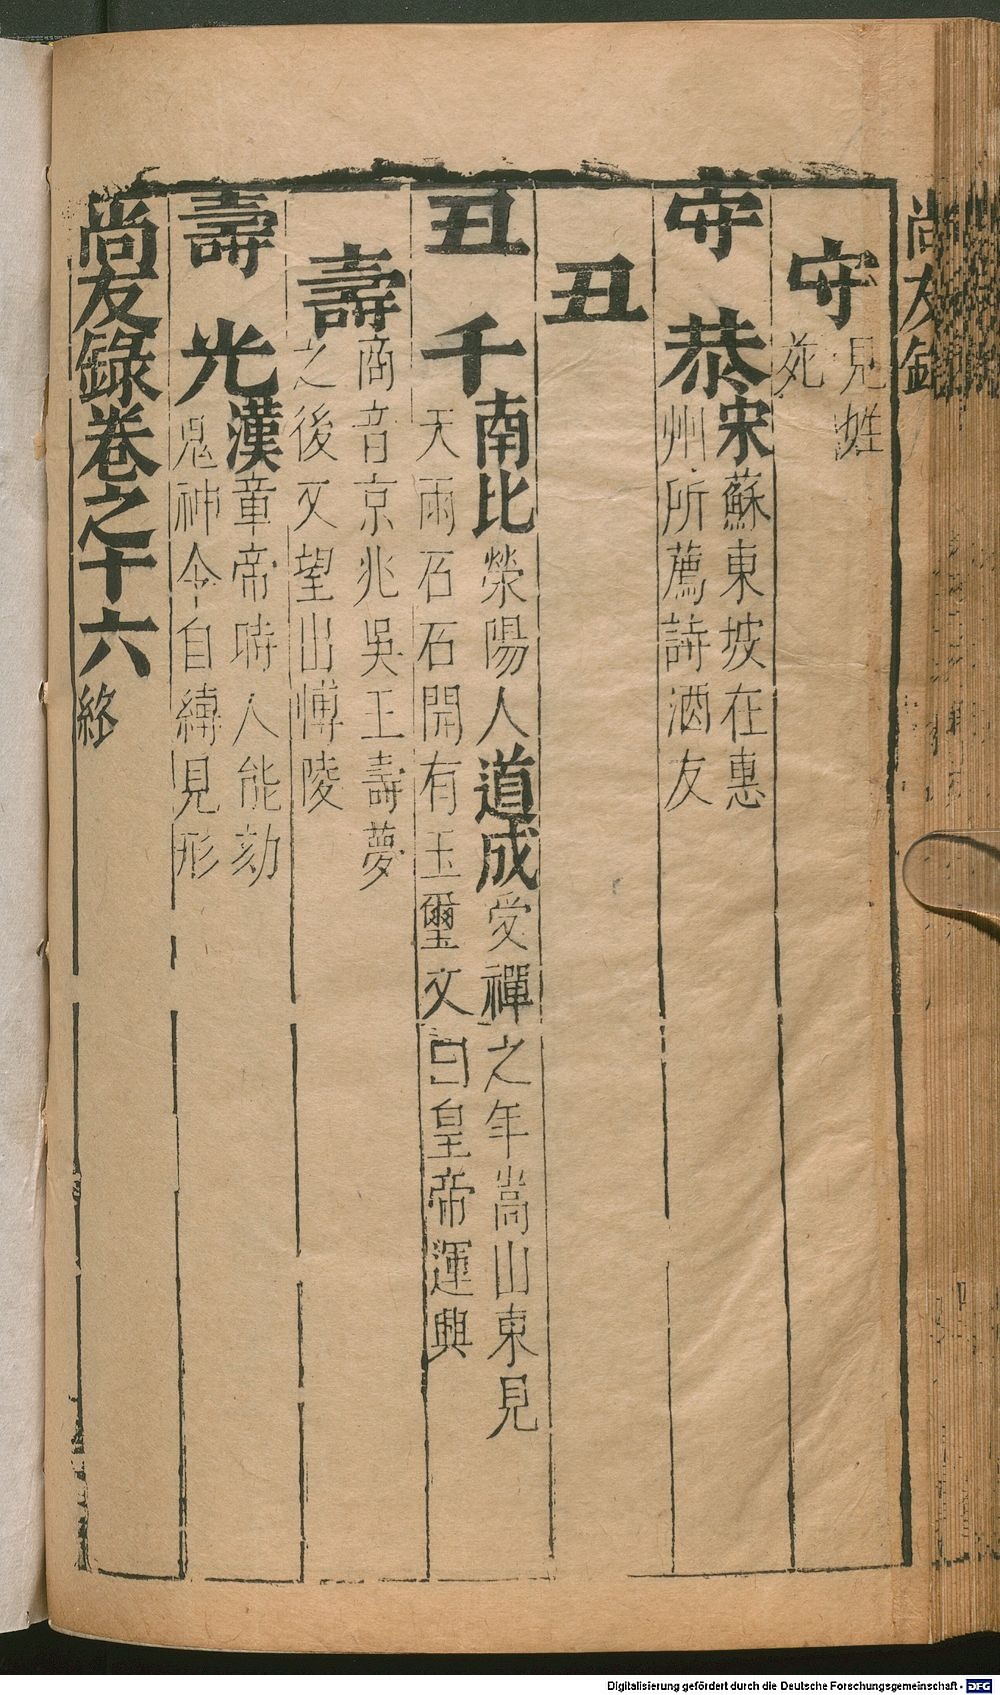 尚友錄
守 見姓
苑
守 恭 宋 蘇東坡在惠
州所薦詩酒友
丑
丑 千 南北 滎陽人 道成 受禪之年嵩山東見
天雨石石開有玉璽文曰皇帝運興
壽 商音京兆吳王壽夢
之後又望出博陵
壽 光 漢 章帝時人能劾
鬼神令自縛見形
尚友錄卷之十六 終
Digitalisierung gefördert durch die Deutsche Forschungsgemeinschaft - DFG